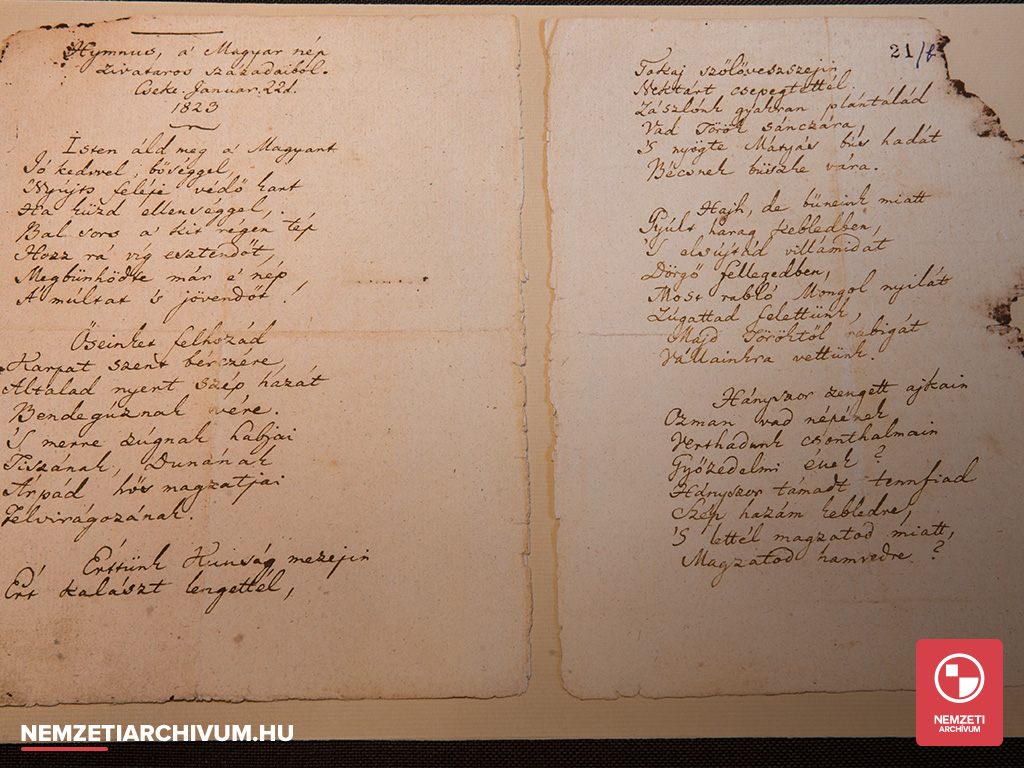 Hymnus, a' Magyar nép
zivataros századaiból.
Cseke. Januar. 22d.
1823
Isten áldd meg a' Magyart
Jó kedvvel, bőséggel,
Nyújts feléje védő kart
Ha küzd ellenséggel,
Bal sors a' kit régen tép
Hozz rá víg esztendőt,
Megbünhödte már e' nép
A' múltat 's jövendőt!
Őseinket felhozád
Karpat szent bérczére,
Általad nyert szép hazát
Bendegúznak vére.
'S merre zúgnak habjai
Tiszának, Dunának
Árpád hős magzatjai
Felvirágozának.
Értünk Kunság mezejin
Ért kalászt lengettél,
21/b
Tokaj szőlővesszejin
Nektárt csepegtettél.
Zászlónk gyakran plántálád
Vad Török sánczára,
'S nyögte Mátyás bús hadát
Bécsnek büszke vára.
Hajh, de bűneink miatt
Gyúlt harag kebledben,
'S elsújtád villámidat
Dörgő fellegedben,
Most rabló Mongol nyilát
Zúgattad felettünk,
Majd Töröktől rabigát
Vállainkra vettünk.
Hányszor zengett ajkain
Ozman vad népének
Vert hadunk csonthalmain
Győzedelmi ének?
Hányszor támadt tennfiad
Szép hazám kebledre,
'S lettél magzatod miatt,
Magzatod hamvedre?
NEMZETIARCHIVUM.HU
NEMZETI
ARCHÍVUM